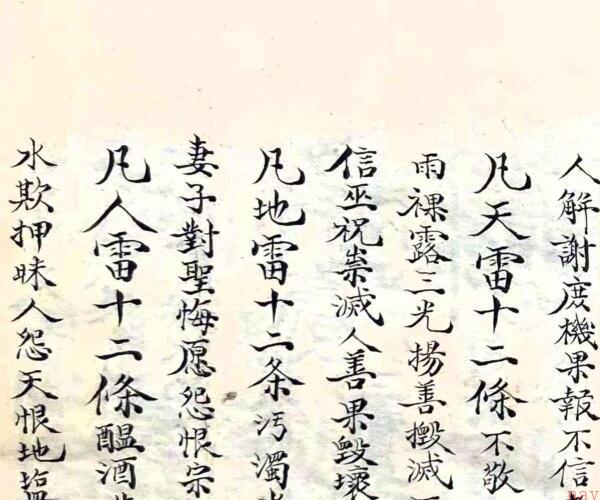 人解謝庶機果報不信
凡天雷十二條不敬
雨裸露三光揚善撽滅
信巫祝祟滅人善果毀壞
凡地雷十二条污濁
妻子對聖悔愿怨恨宗
凡人雷十二條醖酒
水欺押昧人怨天恨地
nav